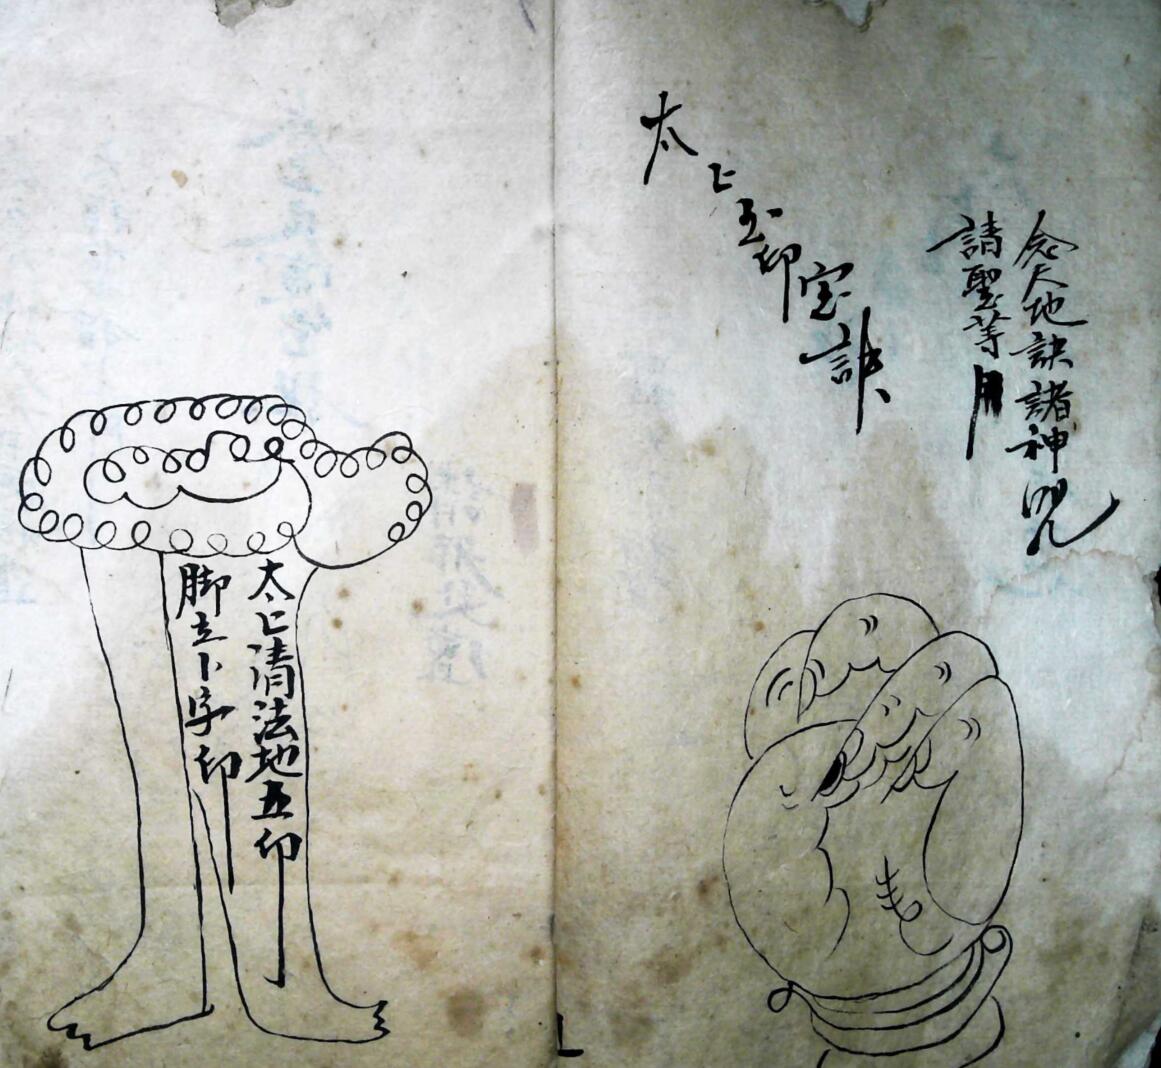 念天地訣諸神咒
請聖等用
太上玉印宝訣
太上清法地五印
脚立卜字印